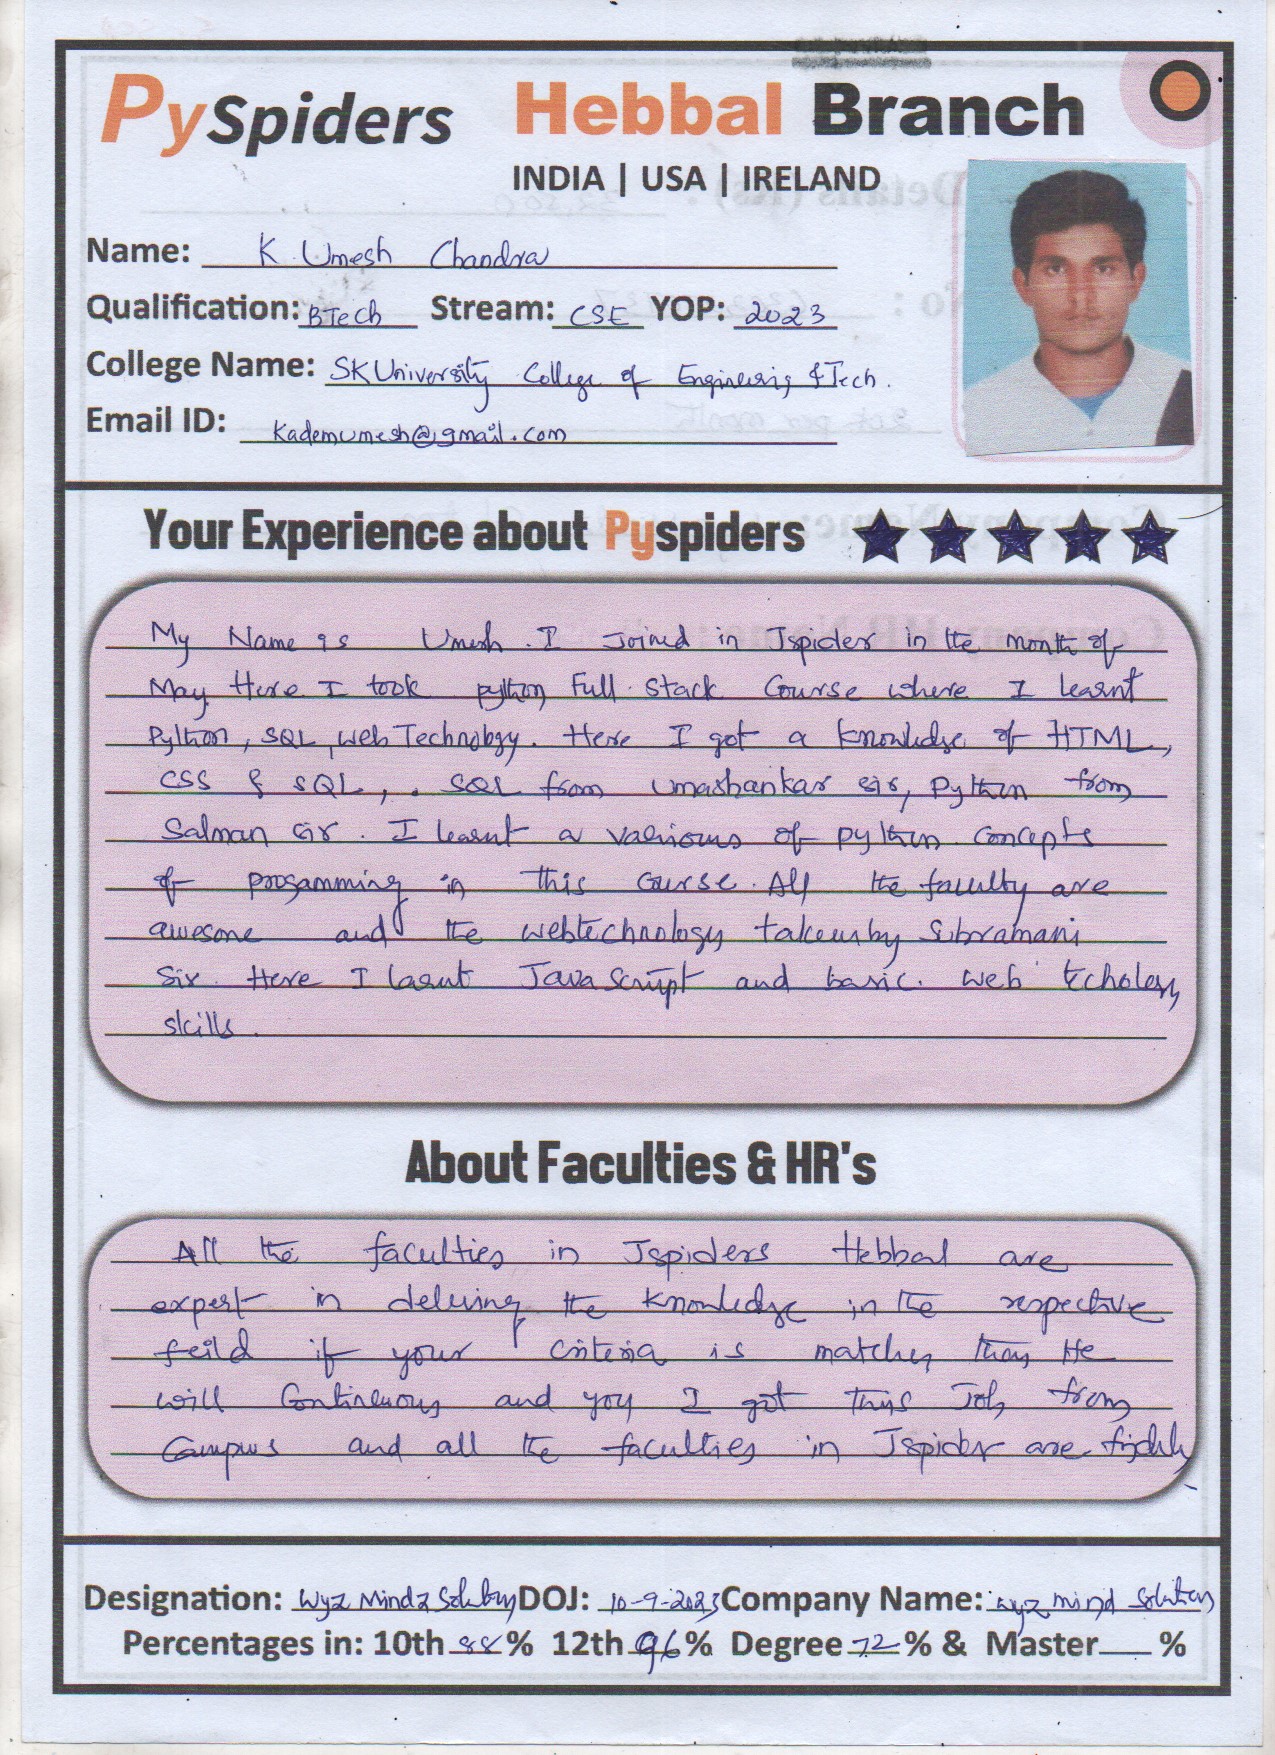 PySpiders Hebbal Branch
INDIA | USA | IRELAND
Name: K. Umesh Chandra
Qualification: BTech Stream: CSE YOP: 2023
College Name: SK University College of Engineering & Tech.
Email ID: kademumesh@gmail.com
Your Experience about Pyspiders
My Name is Umesh. I Joined in Jspider in the month of
May. Here I took python Full Stack Course where I learnt
Python, SQL, web Technology. Here I got a knowledge of HTML,
CSS & SQL, . SQL from Umashankar sir, Python from
Salman sir. I learnt a various of python concepts
of progamming in this course. All the faculty are
awesome and the webtechnology taken by Subramani
Sir. Here I lasnt JavaScript and basic. web
skills.
About Faculties & HR's
All the faculties in Jspiders Hebbal are
expert in the knowledge in the respective
feild if your criteria is He
will and you I got This Job from
Campus and all the faculties in Jspider are
Designation: Wyz Mindz DOJ: 10-9-2023 Company Name: wyz mind Solutions
Percentages in: 10th 88% 12th 96% Degree 72% & Master %